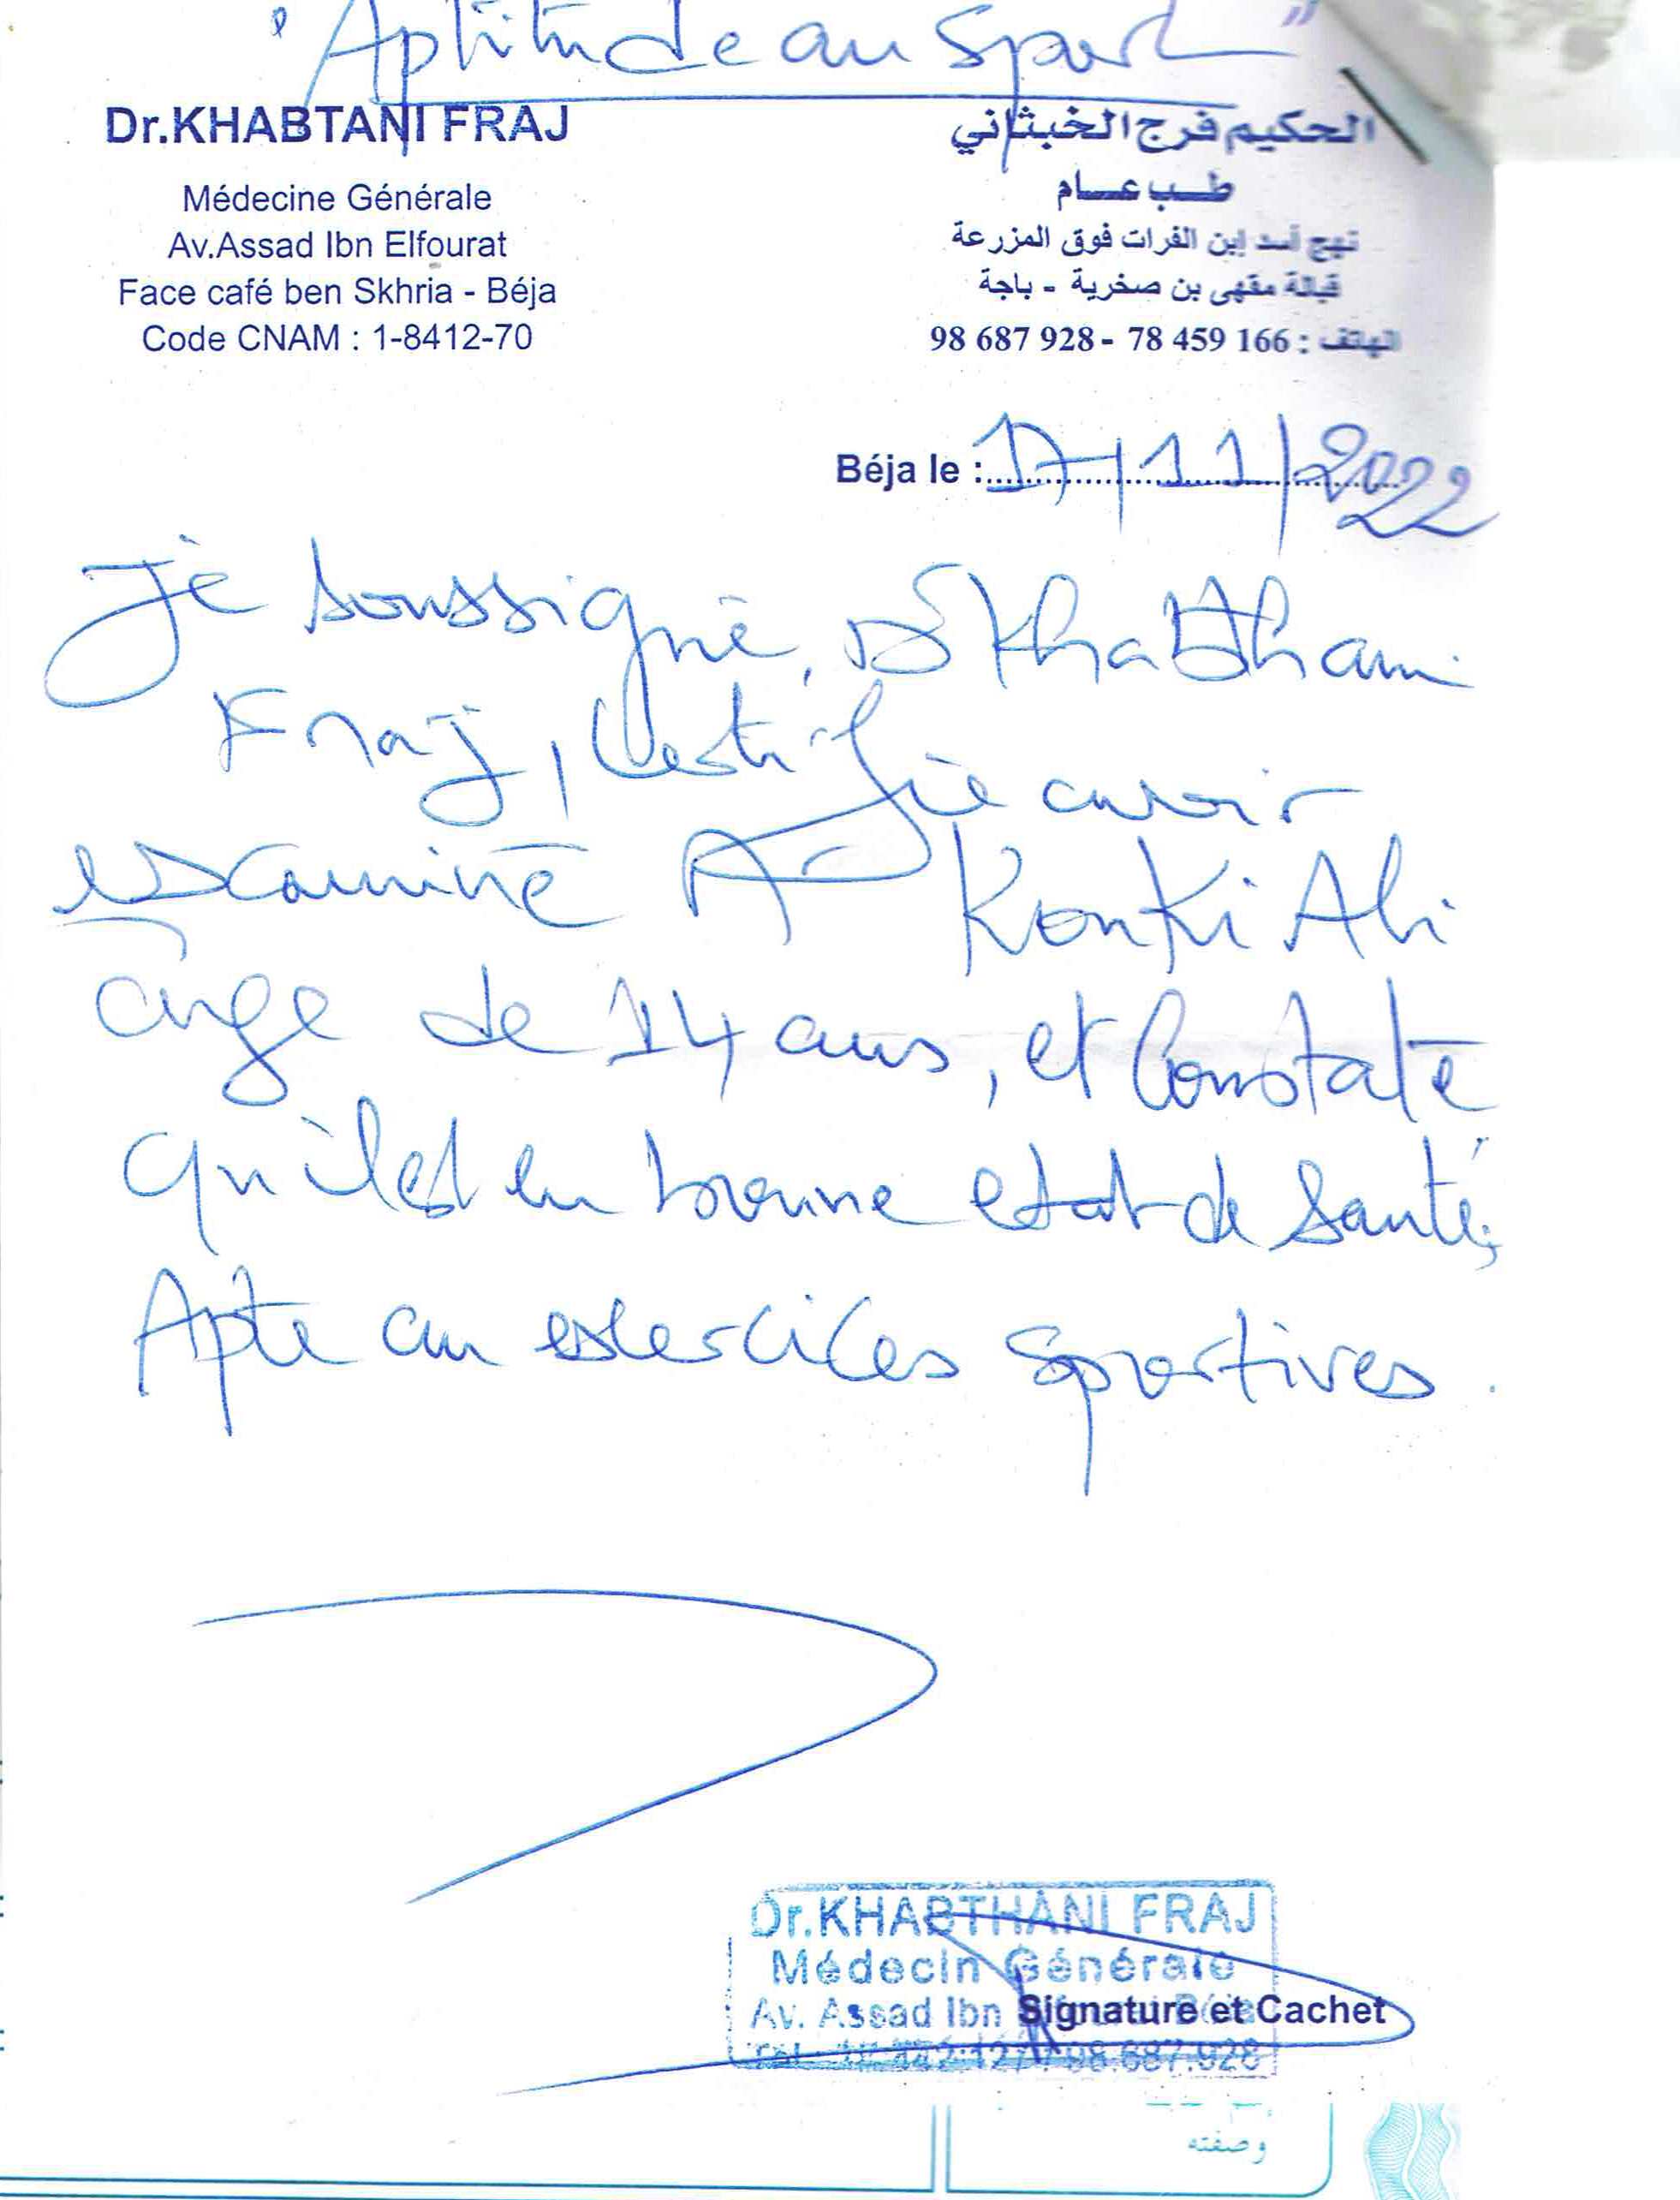 "Aptitude au Sport"
Dr.KHABTANI FRAJ
Médecine Générale
Av.Assad Ibn Elfourat
Face café ben Skhria - Béja
Code CNAM : 1-8412-70
الحكيم فرج الخبثاني
طب عام
نهج أسد إبن الفرات فوق المزرعة
قبالة مقهى بن صخرية - باجة
الهاتف : 166 459 78 - 928 687 98
Béja le : 17/11/2022
Je soussigné, Dr Khabthani
Fraj, Certifie avoir
examiné Konki Ali
age de 14 ans, et Constaté
qu'il est en bonne etat de Santé,
Apte au exercices sportives.
Dr.KHABTHANI FRAJ
Médecin Générale
Av. Assad Ibn
Signature et Cachet
98.687.928
وصفته